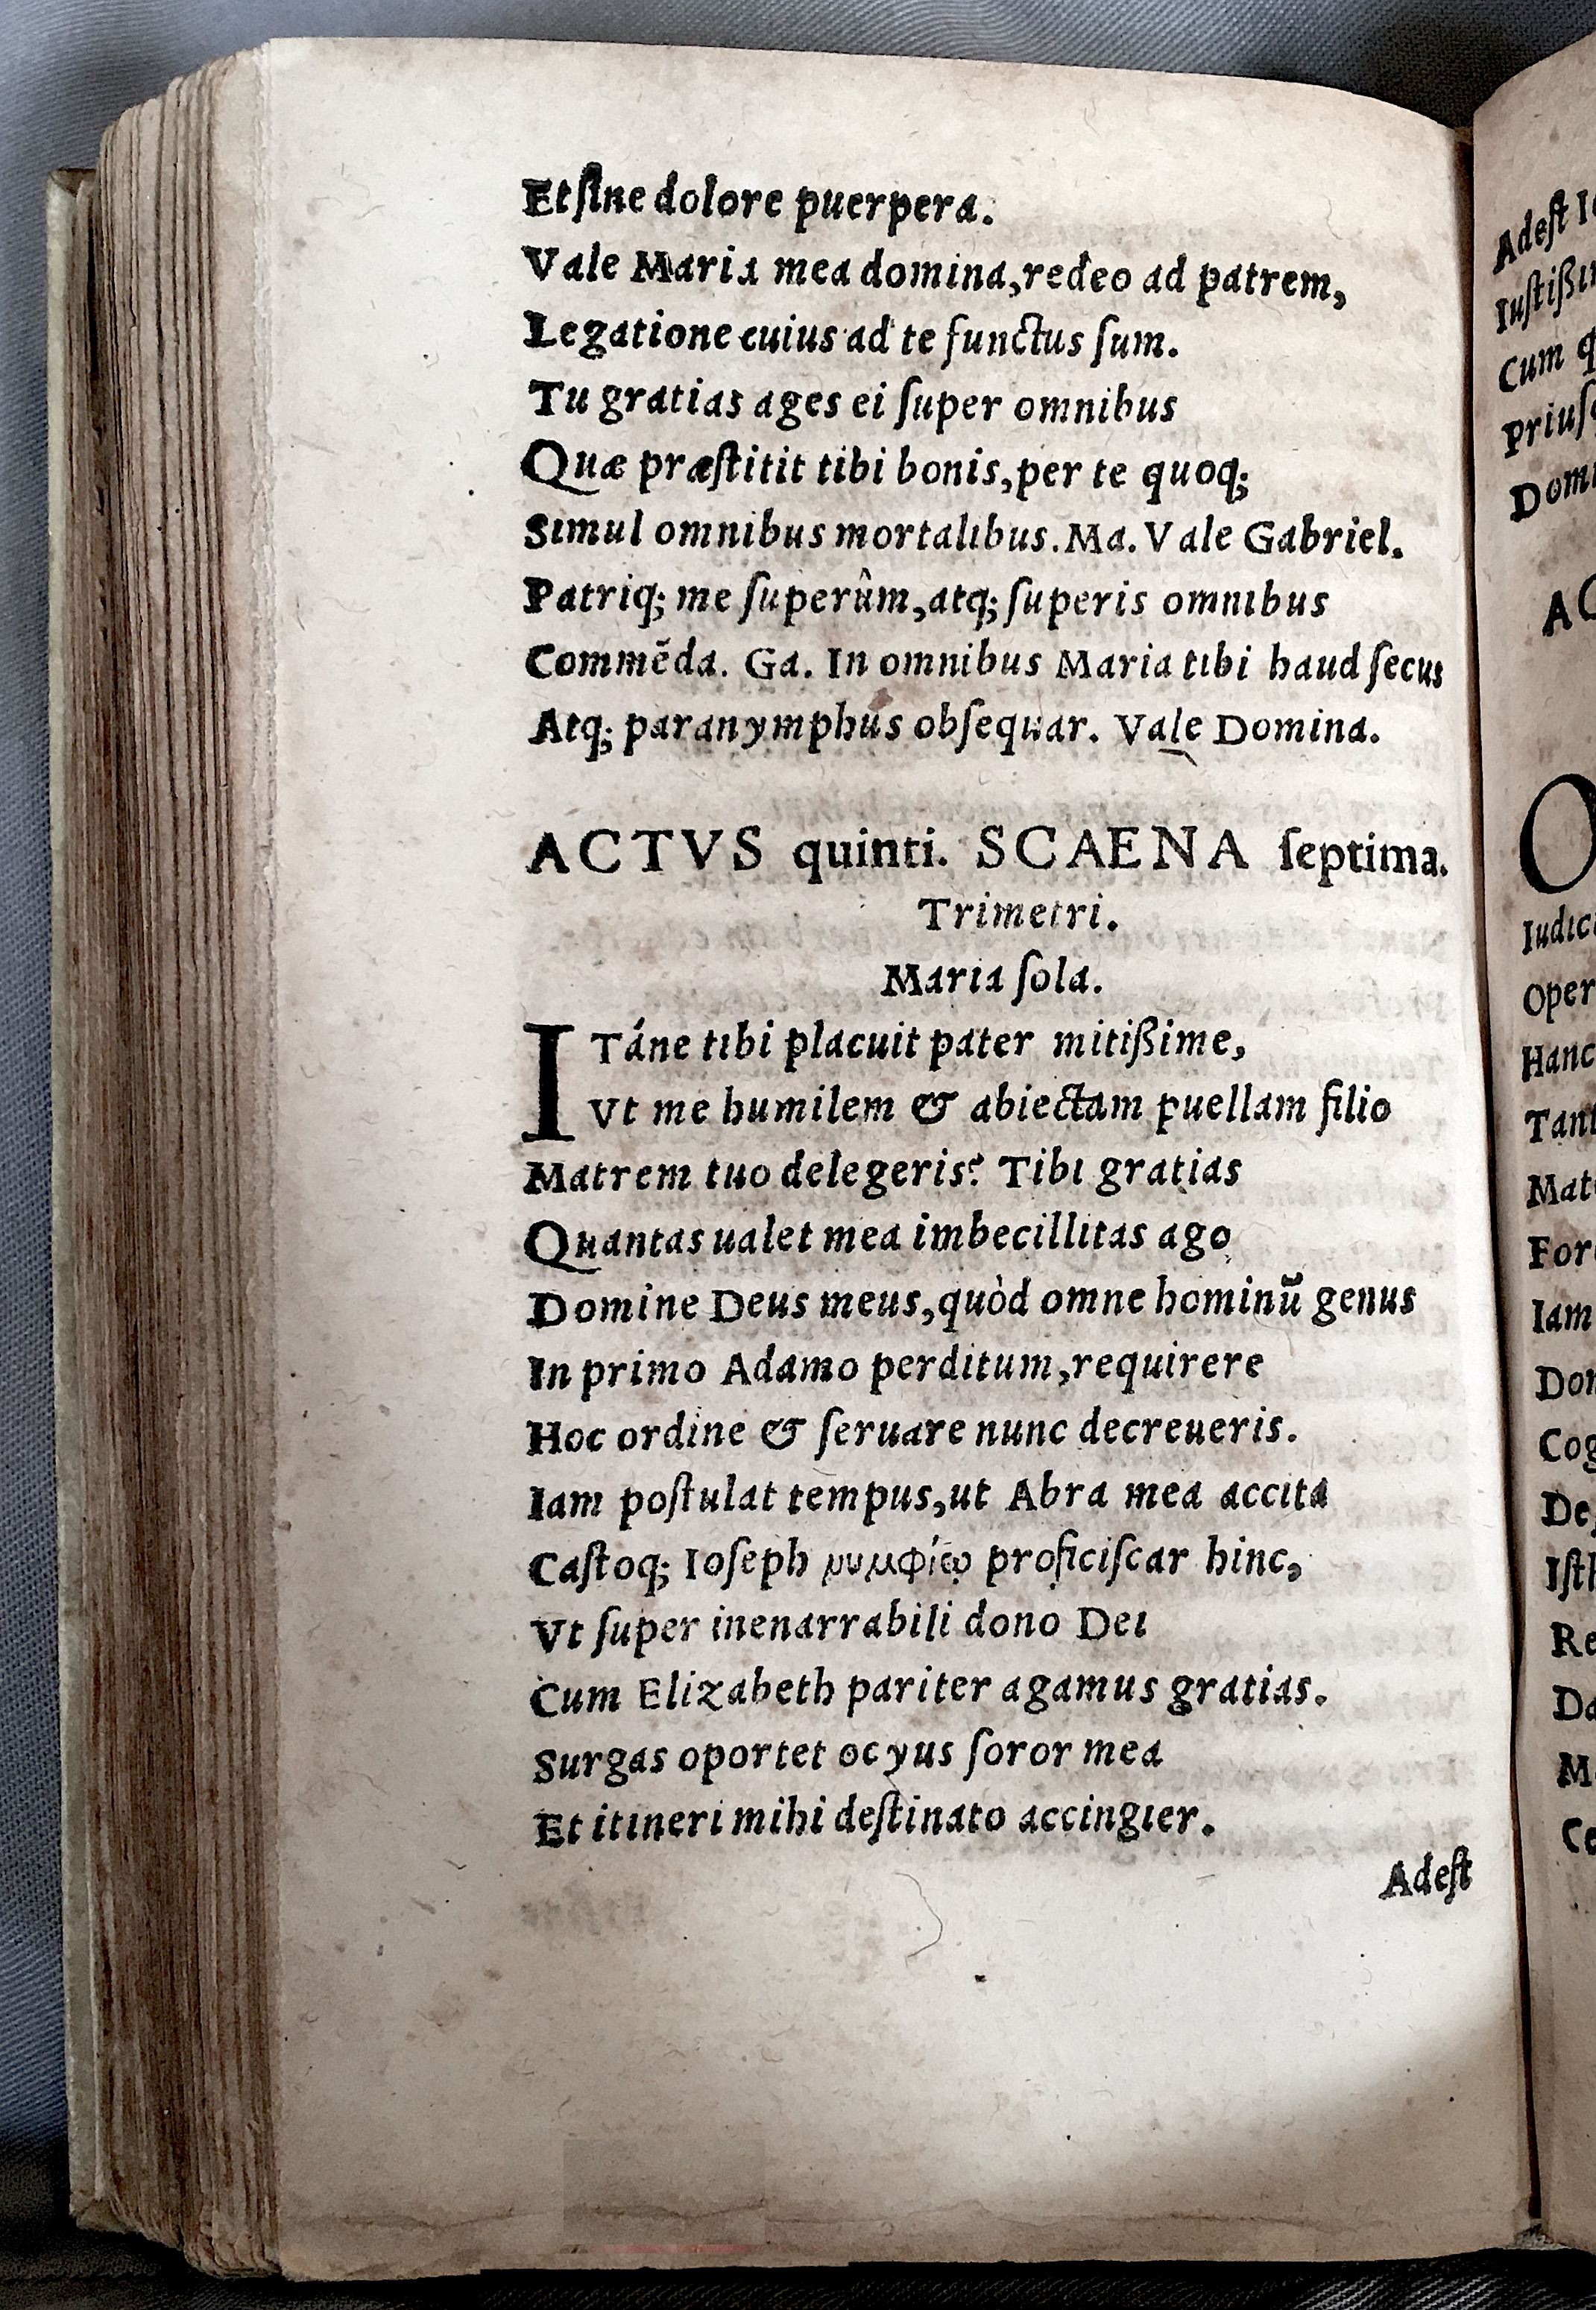 Et ſine dolore puerpera.
Vale Maria mea domina, redeo ad patrem,
Legatione cuius ad te functus ſum.
Tu gratias ages ei ſuper omnibus
Quæ præſtitit tibi bonis, per te quoq;
Simul omnibus mortalibus. Ma. Vale Gabriel.
Patriq; me ſuperûm, atq; ſuperis omnibus
Commēda. Ga. In omnibus Maria tibi haud ſecus
Atq; paranymphus obſequar. Vale Domina.
ACTVS quinti. SCAENA ſeptima.
Trimetri.
Maria ſola.
ITáne tibi placuit pater mitißime,
Vt me humilem & abiectam puellam filio
Matrem tuo delegeris? Tibi gratias
Quantas ualet mea imbecillitas ago
Domine Deus meus, quòd omne hominū genus
In primo Adamo perditum, requirere
Hoc ordine & ſeruare nunc decreueris.
Iam poſtulat tempus, ut Abra mea accita
Caſtoq; Ioſeph νυμφίῳ proficiſcar hinc,
Vt ſuper inenarrabili dono Dei
Cum Elizabeth pariter agamus gratias.
Surgas oportet ocyus ſoror mea
Et itineri mihi deſtinato accingier.
Adeſt
Adeſt
Cum
AC
O
Hanc
Iam